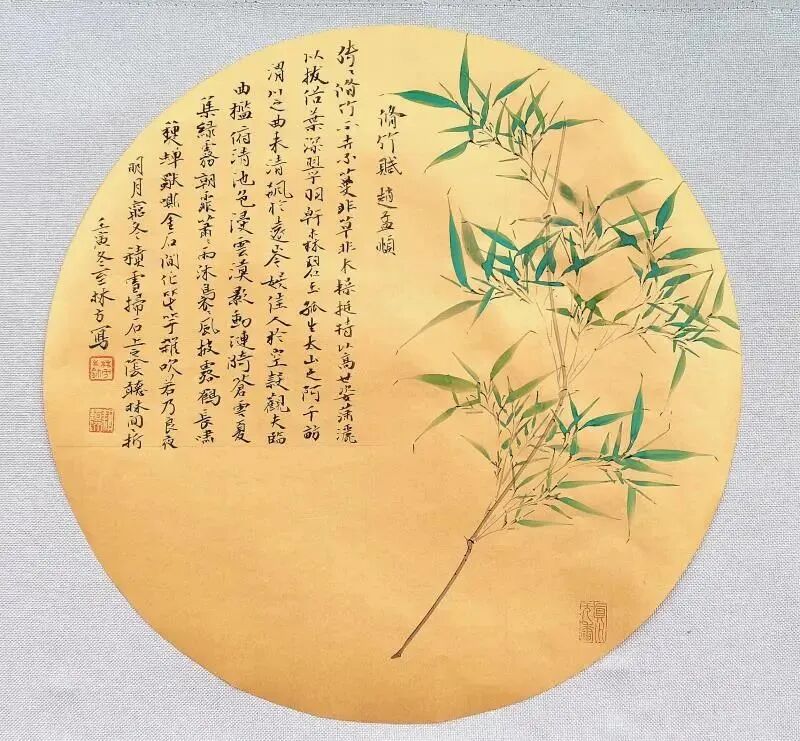 脩竹賦 趙孟頫
猗〻脩竹不卉不蔓非草非木操挺特以高世姿蕭灑
以拔俗葉深翠羽幹森碧玉孤生太山之阿千畝
渭川之曲来清飆於遠岑娱佳人於空谷觀夫臨
曲檻俯清池色浸雲漢影動漣漪蒼雲夏
集緑霧朝霏蕭〻雨沐裊風披露鶴長嘯
蟬獨嘶金石間作笙竽誰吹若乃良夜
明月窮冬積雪掃石上之陰聽林間折
壬寅冬至林方寫